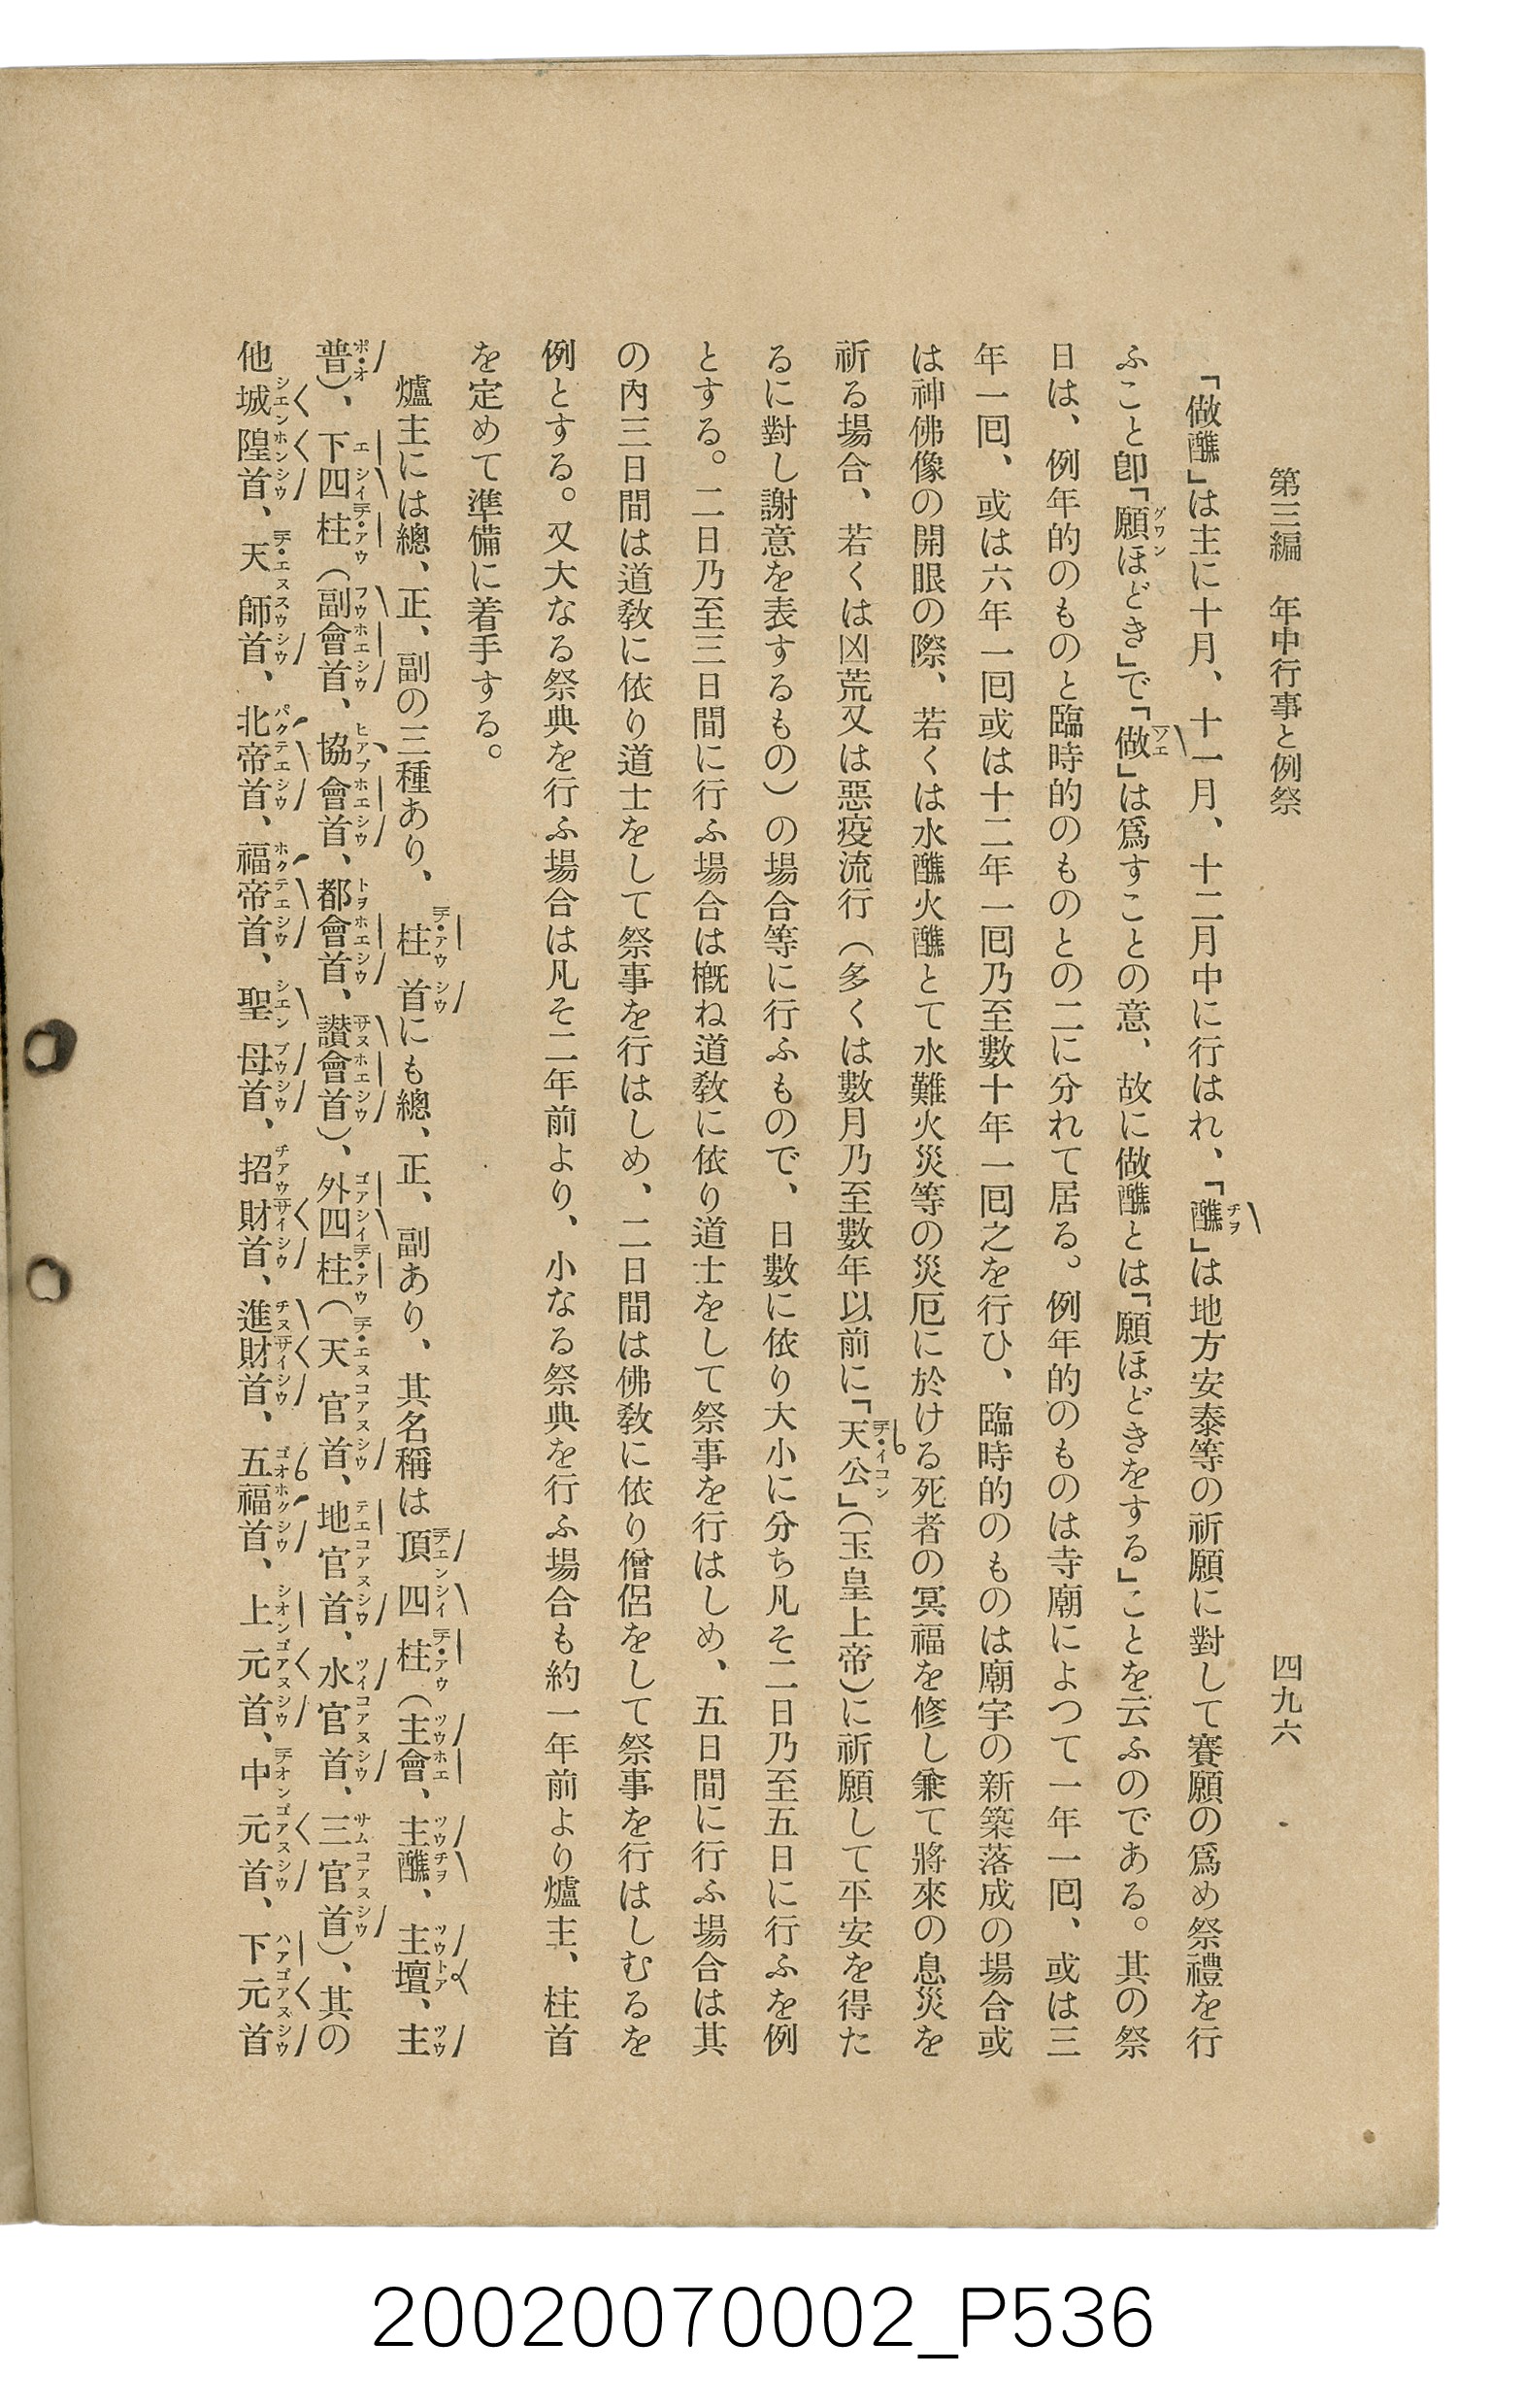 第三編　年中行事と例祭　四九六
「做醮」は主に十月、十一月、十二月中に行はれ、「醮」は地方安泰等の祈願に對して賽願の爲め祭禮を行
ふこと卽「願ほどき」で「做」は爲すことの意、故に做醮とは「願ほどきをする」ことを云ふのである。其の祭
日は、例年的のものと臨時的のものとの二に分れて居る。例年的のものは寺廟によつて一年一囘、或は三
年一囘、或は六年一囘或は十二年一囘乃至數十年一囘之を行ひ、臨時的のものは廟宇の新築落成の場合或
は神佛像の開眼の際、若くは水醮火醮とて水難火災等の災厄に於ける死者の冥福を修し兼て將來の息災を
祈る場合、若くは凶荒又は惡疫流行（多くは數月乃至數年以前に「天公」（玉皇上帝）に祈願して平安を得た
るに對し謝意を表するもの）の場合等に行ふもので、日數に依り大小に分ち凡そ二日乃至五日に行ふを例
とする。二日乃至三日間に行ふ場合は槪ね道敎に依り道士をして祭事を行はしめ、五日間に行ふ場合は其
の內三日間は道敎に依り道士をして祭事を行はしめ、二日間は佛敎に依り僧侶をして祭事を行はしむるを
例とする。又大なる祭典を行ふ場合は凡そ二年前より、小なる祭典を行ふ場合も約一年前より爐主、柱首
を定めて準備に着手する。
爐主には總、正、副の三種あり、柱首にも總、正、副あり、其名稱は頂四柱（主會、主醮、主壇、主
普）、下四柱（副會首、協會首、都會首、讃會首）、外四柱（天官首、地官首、水官首、三官首）、其の
他城隍首、天師首、北帝首、福帝首、聖母首、招財首、進財首、五福首、上元首、中元首、下元首
20020070002_P536